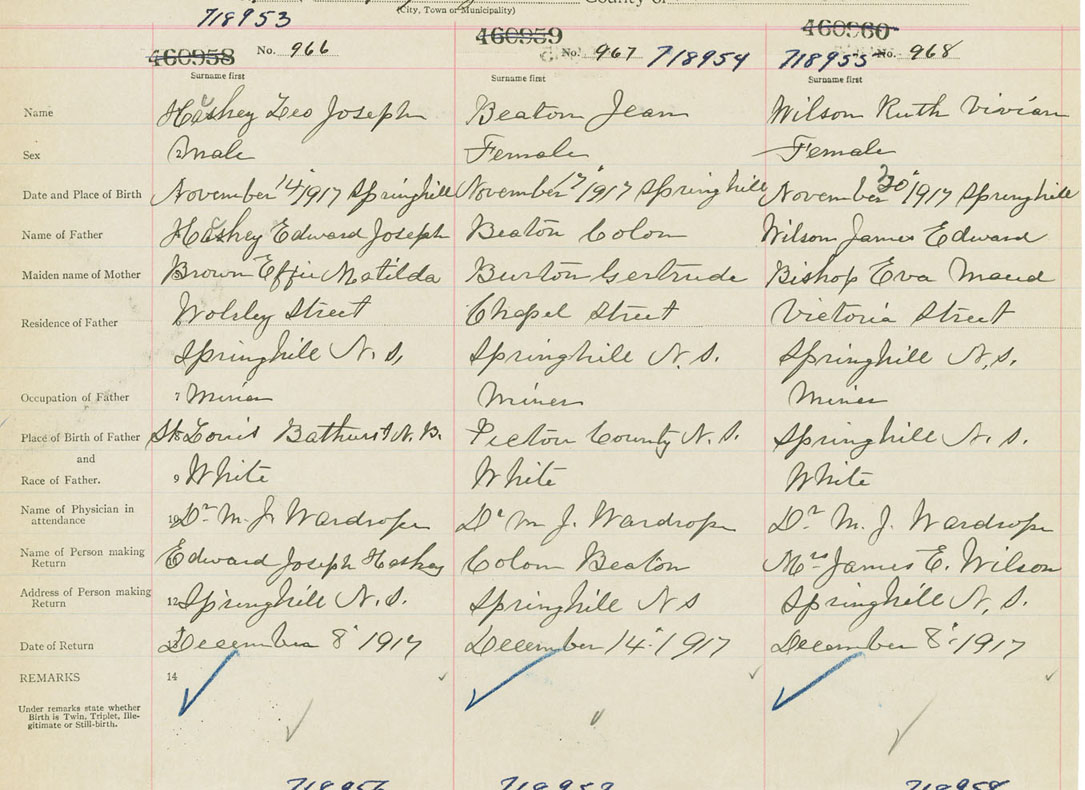 (City, Town or Municipality)
718953
460958 No. 966
460959 No. 967 718954
460960 718955 No. 968
Surname first Surname first Surname first
Name Leo Joseph Beaton Jean Wilson Ruth Vivian
Sex 2 Male Female Female
Date and Place of Birth November 14/1917 Springhill November 17/1917 Springhill November 30/1917 Springhill
Name of Father Edward Joseph Beaton Colom Wilson James Edward
Maiden name of Mother Brown Effie Matilda Burton Gertrude Bishop Eva Maud
Residence of Father Wolsley Street Chapel Street Victoria Street
Springhill N. S. Springhill N. S. Springhill N. S.
Occupation of Father 7 Miner Miner Miner
Place of Birth of Father St Louis Bathurst N. B. Pictou County N. S. Springhill N. S.
and
Race of Father. 9 White White White
Name of Physician in attendance 10 Dr M. J. Wardrope Dr M J. Wardrope Dr M. J. Wardrope
Name of Person making Return Edward Joseph Colom Beaton Mrs James E. Wilson
Address of Person making Return 12 Springhill N. S. Springhill N S Springhill N. S.
Date of Return December 8" 1917 December 14" 1917 December 8" 1917
REMARKS 14
Under remarks state whether
Birth is Twin, Triplet, Ille-
gitimate or Still-birth.